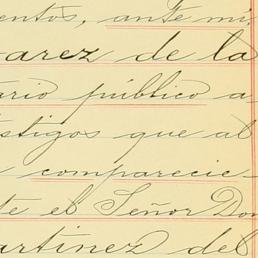 entos, ante mi
arez de la
ario público a
stigos que al
comparecie-
te el Señor Don
artinez del